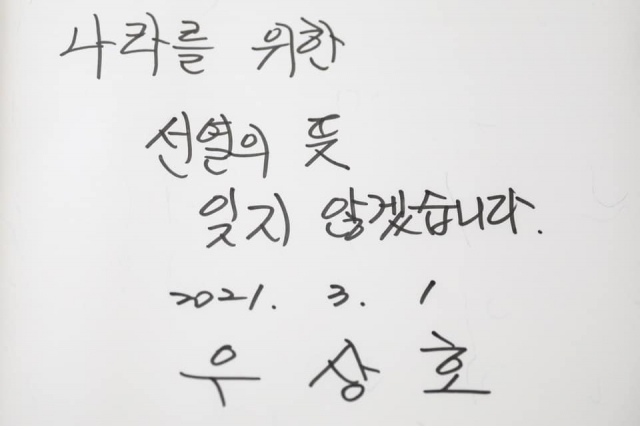 나라를 위한
선열의 뜻
잊지 않겠습니다.
2021. 3. 1
우 상 호